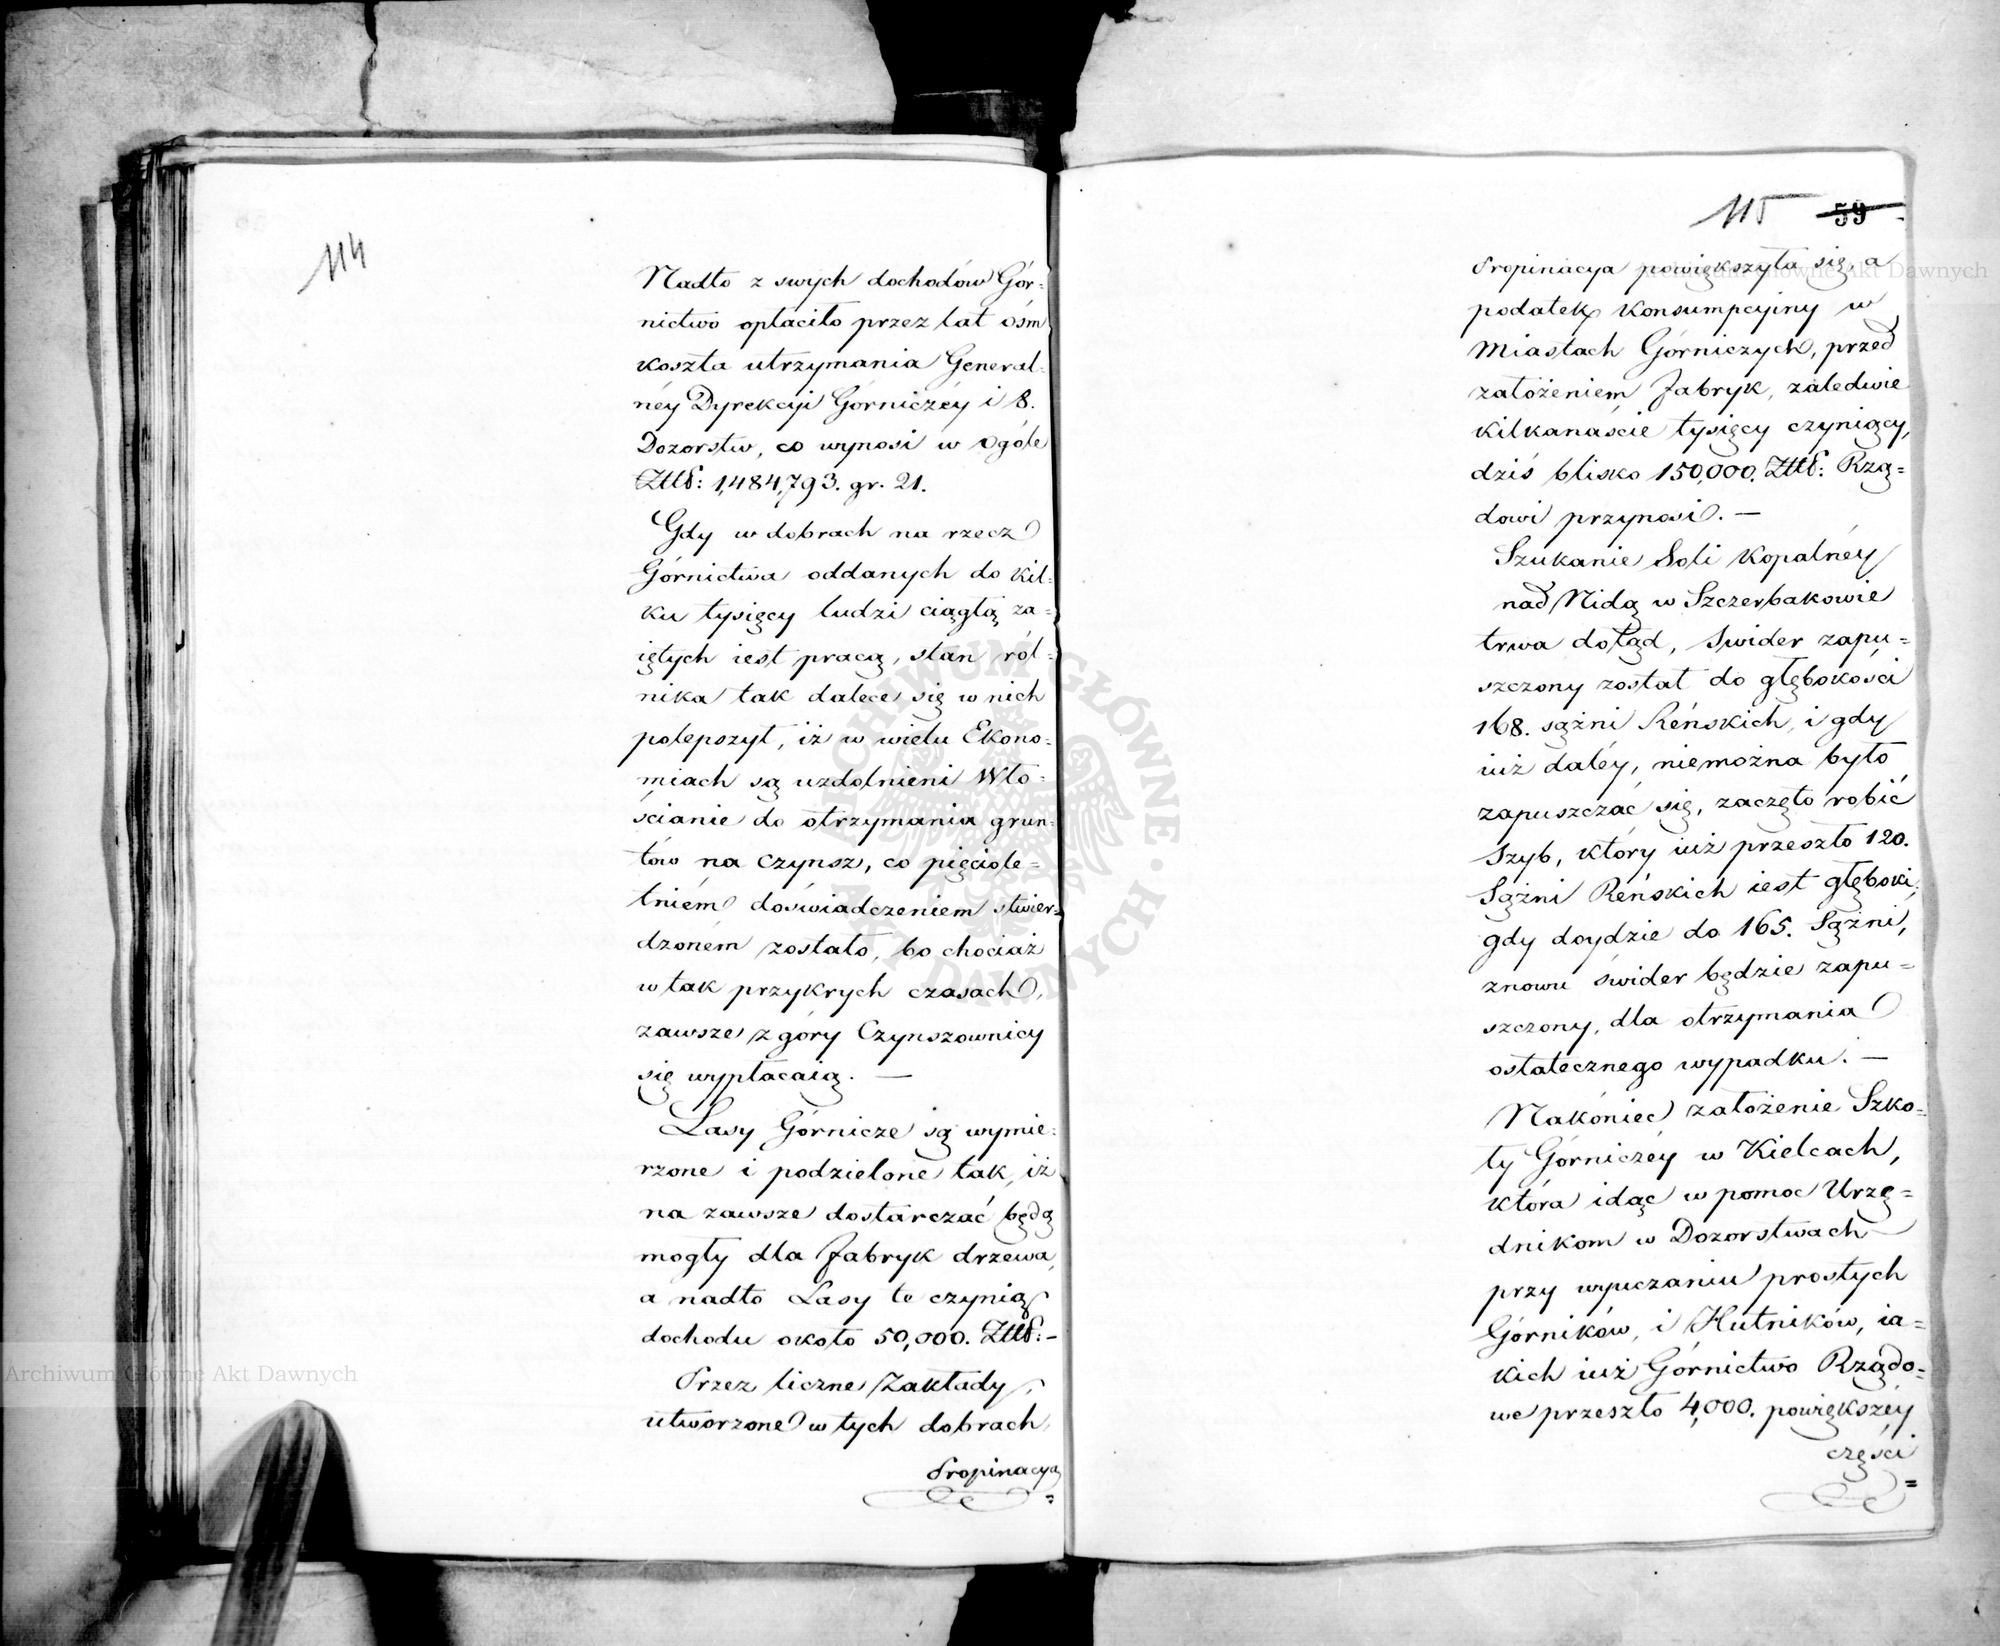 114
Nadto z swych dochodów Gór=
nictwo opłaciło przez lat ośm
koszta utrzymania General=
néy Dyrekcyi Górniczéy i 8.
Dozorstw, co wynosi w ogóle
Złtt: 1,484,793. gr. 21.
Gdy w dobrach na rzecz
Górnictwa oddanych do kil=
ku tysięcy ludzi ciągłą za=
iętych iest pracą, stan rol=
nika tak dalece się w nich
polepszył, iż w wielu Ekono=
miach są uzdolnieni Wło=
ścianie do otrzymania grun=
tów na Czynsz, co pięciole=
tniém doświadczeniem stwier=
dzoném zostało, bo chociaż
w tak przykrych czasach,
zawsze z góry Czynszownicy
się wypłacaią. —
Lasy Górnicze są wymie=
rzone i podzielone tak, iż
na zawsze dostarczać będą
mogły dla Fabryk drzewa,
a nadto Lasy te czynią
dochodu około 50,000. Złtt: –
Przez liczne Zakłady,
utworzone w tych dobrach,
Propinacya
=
115 59
Propinacya powiększyła się, a
podatek konsumpcyiny w
Miastach Górniczych, przed
założeniem Fabryk, zaledwie
kilkanaście tysięcy czyniący,
dziś blisko 150,000. Złtt: Rzą=
dowi przynosi. —
Szukanie Soli kopalnéy
nad Nidą w Szczerbakowie
trwa dotąd, Swider zapu=
szczony został do głębokości
168. sążni Reńskich, i gdy
iuż daléy, niemożna było
zapuszczać się, zaczęto robić
Szyb, który iuż przeszło 120.
Sążni Reńskich iest głęboki;
gdy doydzie do 165. Sążni,
znowu świder będzie zapu=
szczony, dla otrzymania
ostatecznego wypadku. —
Nakoniec założenie Szko=
ły Górniczéy w Kielcach,
która idąc w pomoc Urzę=
dnikom w Dozorstwach
przy wyuczaniu prostych
Górników, i Hutników, ia=
kich iuż Górnictwo Rządo=
we przeszło 4,000. powiększéy
części
=
Archiwum Główne Akt Dawnych
Archiwum Główne Akt Dawnych
ARCHIWUM GŁÓWNE · AKT DAWNYCH ·